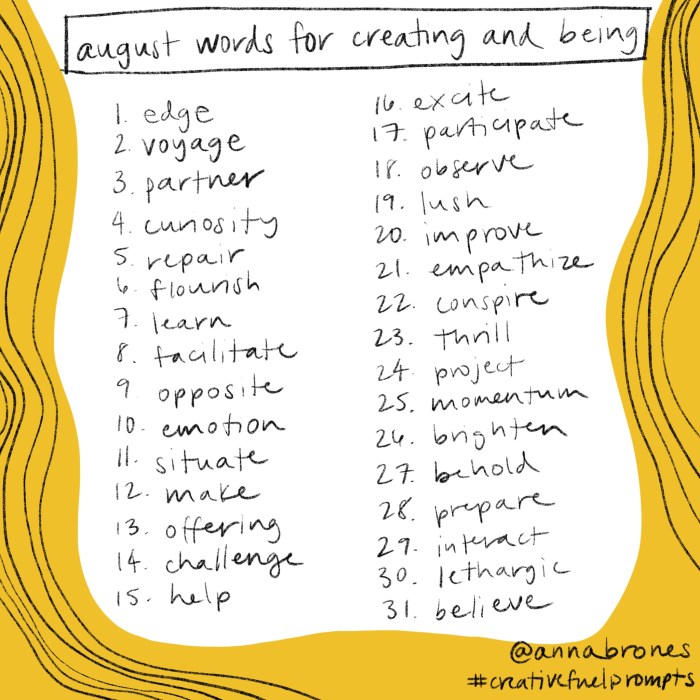 august words for creating and being
1. edge
2. voyage
3. partner
4. curiosity
5. repair
6. flourish
7. learn
8. facilitate
9. opposite
10. emotion
11. situate
12. make
13. offering
14. challenge
15. help
16. excite
17. participate
18. observe
19. lush
20. improve
21. empathize
22. conspire
23. thrill
24. project
25. momentum
26. brighten
27. behold
28. prepare
29. interact
30. lethargic
31. believe
@annabrones
#creativefuelprompts